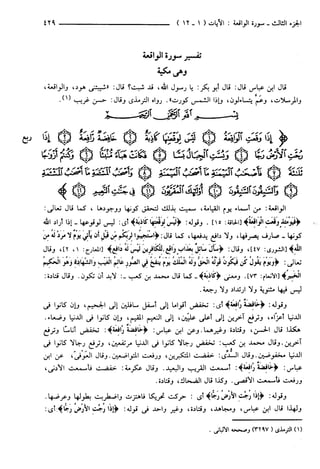 الجزء الثالث - سورة الواقعة : الآيات ( ١ - ١٢ )
٤٢٩
تفسير سورة الواقعة
وهي مكية
قال ابن عباس قال: قال أبو بكر: يا رسول الله، قد شبت؟ قال: «شيبتني هود، والواقعة،
والمرسلات، وعم يتساءلون، وإذا الشمس كورت». رواه الترمذي وقال: حسن غريب (١).
﴿ إِذَا وَقَعَتِ الْوَاقِعَةُ لَيْسَ لِوَقْعَتِهَا كَاذِبَةٌ خَافِضَةٌ رَافِعَةٌ إِذَا
رُجَّتِ الْأَرْضُ رَجًّا وَبُسَّتِ الْجِبَالُ بَسًّا فَكَانَتْ هَبَاءً مُنْبَثًّا وَكُنْتُمْ أَزْوَاجًا
ثَلَاثَةً فَأَصْحَابُ الْمَيْمَنَةِ مَا أَصْحَابُ الْمَيْمَنَةِ وَأَصْحَابُ الْمَشْأَمَةِ مَا أَصْحَابُ الْمَشْأَمَةِ
وَالسَّابِقُونَ السَّابِقُونَ أُولَئِكَ الْمُقَرَّبُونَ فِي جَنَّاتِ النَّعِيمِ ﴾
الواقعة: من أسماء يوم القيامة، سميت بذلك لتحقق كونها ووجودها ، كما قال تعالى:
﴿فَيَوْمَئِذٍ وَقَعَتِ الْوَاقِعَةُ﴾ [الحاقة: ١٥] . وقوله: ﴿لَيْسَ لِوَقْعَتِهَا كَاذِبَةٌ﴾ أي: ليس لوقوعها - إذا أراد الله
كونها - صارف يصرفها، ولا دافع يدفعها، كما قال: ﴿اسْتَجِيبُوا لِرَبِّكُمْ مِنْ قَبْلِ أَنْ يَأْتِيَ يَوْمٌ لَا مَرَدَّ لَهُ مِنَ
اللَّهِ﴾ [الشورى: ٤٧]، وقال: ﴿سَأَلَ سَائِلٌ بِعَذَابٍ وَاقِعٍ لِلْكَافِرِينَ لَيْسَ لَهُ دَافِعٌ﴾ [المعارج: ١، ٢]، وقال
تعالى: ﴿وَيَوْمَ يَقُولُ كُنْ فَيَكُونُ قَوْلُهُ الْحَقُّ وَلَهُ الْمُلْكُ يَوْمَ يُنْفَخُ فِي الصُّورِ عَالِمُ الْغَيْبِ وَالشَّهَادَةِ وَهُوَ الْحَكِيمُ
الْخَبِيرُ﴾ [الأنعام: ٧٣]. ومعنى ﴿كَاذِبَةٌ﴾ـ كما قال محمد بن كعب ـ: لابد أن تكون. وقال قتادة:
ليس فيها مثنوية ولا ارتداد ولا رجعة.
وقوله: ﴿خَافِضَةٌ رَافِعَةٌ﴾ أي: تخفض أقواما إلى أسفل سافلين إلى الجحيم، وإن كانوا في
الدنيا أعزاء، وترفع آخرين إلى أعلى عليين، إلى النعيم المقيم، وإن كانوا في الدنيا وضعاء.
هكذا قال الحسن، وقتادة وغيرهما. وعن ابن عباس: ﴿خَافِضَةٌ رَافِعَةٌ﴾: تخفض أناسا وترفع
آخرين. وقال محمد بن كعب: تخفض رجالا كانوا في الدنيا مرتفعين، وترفع رجالا كانوا في
الدنيا مخفوضين. وقال السُّدي: خفضت المتكبرين، ورفعت المتواضعين. وقال العوفي، عن ابن
عباس: ﴿خَافِضَةٌ رَافِعَةٌ﴾: أسمعت القريب والبعيد. وقال عكرمة: خفضت فأسمعت الأدنى،
ورفعت فأسمعت الأقصى. وكذا قال الضحاك، وقتادة.
وقوله: ﴿إِذَا رُجَّتِ الْأَرْضُ رَجًّا﴾ أي : حركت تحريكا فاهتزت واضطربت بطولها وعرضها.
ولهذا قال ابن عباس، ومجاهد، وقتادة، وغير واحد في قوله : ﴿إِذَا رُجَّتِ الْأَرْضُ رَجًّا﴾ أي:
(١) الترمذي (٣٢٩٧) وصححه الألباني .